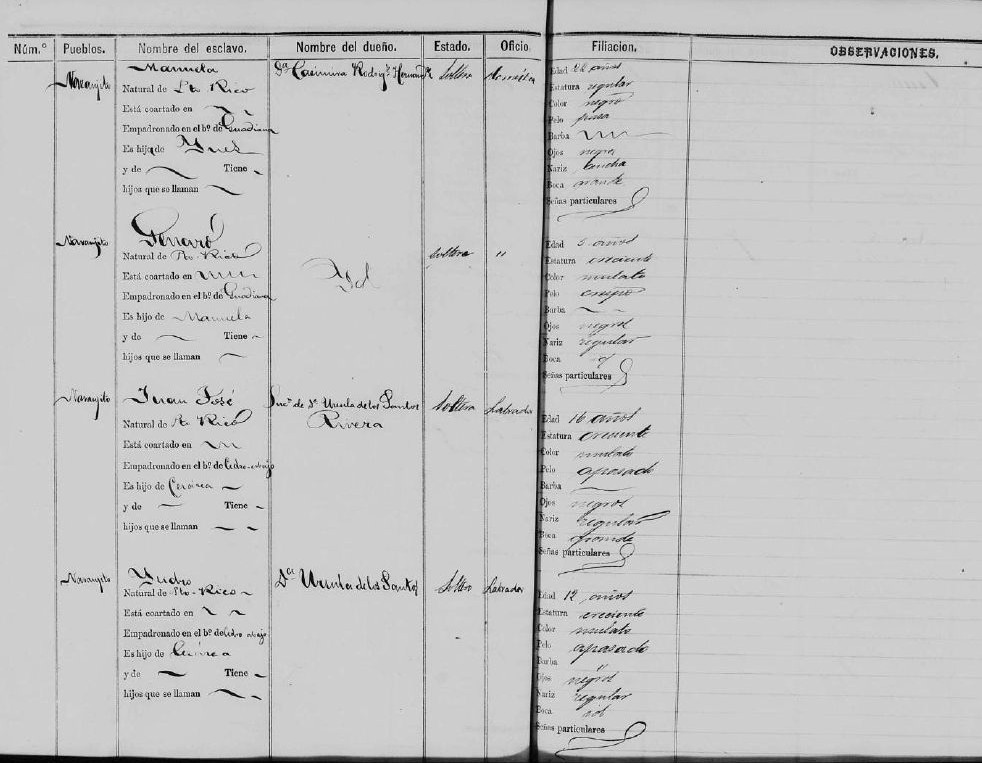 Núm.° Pueblos. Nombre del esclavo. Nombre del dueño. Estado. Oficio. Filiacion. OBSERVACIONES.
Naranjito Manuela Da Casimira Rodrigz Soltera
Natural de Pto Rico
Está coartado en
Empadronado en el bº de Guadiana
Es hija de Ynes
y de Tiene
hijos que se llaman
Edad 22 años
Estatura regular
Color negro
Pelo pasa
Barba
Ojos negros
Nariz ancha
Boca grande
Señas particulares
Naranjito Genaro Yd Soltero "
Natural de Pto-Rico
Está coartado en
Empadronado en el bº de Guadiana
Es hijo de Manuela
y de Tiene
hijos que se llaman
Edad 5 años
Estatura creciente
Color mulato
Pelo crespo
Barba
Ojos negros
Nariz regular
Boca id
Señas particulares
Naranjito Juan José Suc.n de Da Ursula de los Santos Soltero Labrador
Rivera
Natural de Pto Rico
Está coartado en
Empadronado en el bº de Cedro-abajo
Es hijo de
y de Tiene
hijos que se llaman
Edad 16 años
Estatura creciente
Color mulato
Pelo apasado
Barba
Ojos negros
Nariz regular
Boca grande
Señas particulares
Naranjito Da Ursula de los Santos Soltero Labrador
Natural de Pto-Rico
Está coartado en
Empadronado en el bº de Cedro abajo
Es hijo de
y de Tiene
hijos que se llaman
Edad 12 años
Estatura creciente
Color mulato
Pelo apasado
Barba "
Ojos negros
Nariz regular
Boca id
Señas particulares